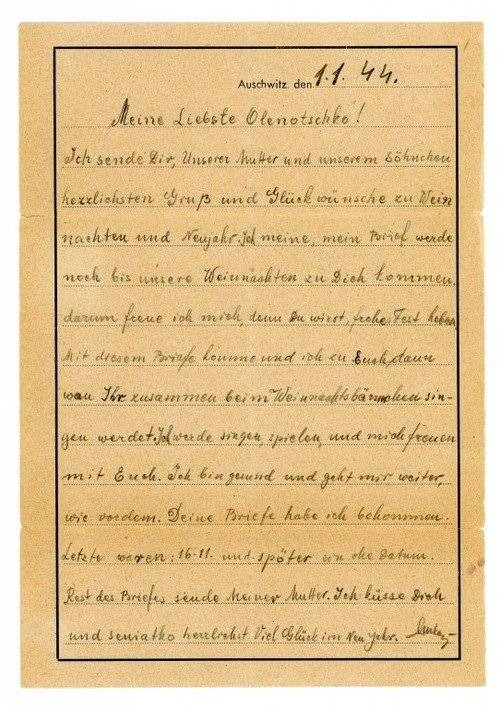 Auschwitz, den 1.1.44.
Meine Liebste Olenotschko!
Ich sende Dir, Unserer Mutter und unserem Söhnchen
herzlichsten Gruß und Glückwünsche zu Wein
nachten und Neujahr. Ich meine, mein Brief werde
noch bis unsere Weinnachten zu Dich kommen.
darum freue ich mich, denn Du wirst, frohes Fest haben
Mit diesem Briefe komme und ich zu Euch, dann
wan Ihr zusammen beim Weinnachtsbäumchen sin-
gen werdet. Ich werde singen, spielen, und mich freuen
mit Euch. Ich bin gesund und geht mir weiter,
wie vordem. Deine Briefe habe ich bekommen.
Letzte waren: 16-11. und später ein ohe Datum.
Rest des Briefes sende Meiner Mutter. Ich küsse Dich
und herzlichst Viel Glück im Neu Jahr.